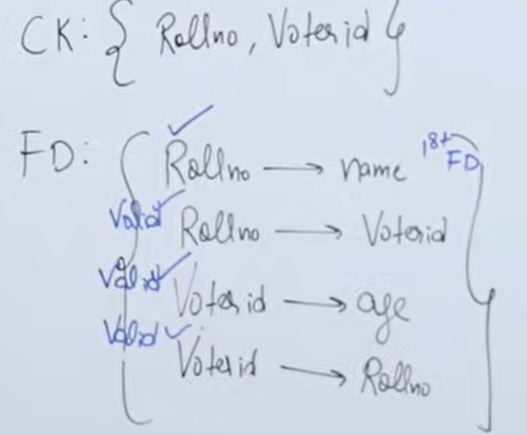 CK: { Rollno, Voterid }
FD: { Rollno → name
Valid Rollno → Voterid
Valid Voterid → age
Valid Voterid → Rollno }
FD